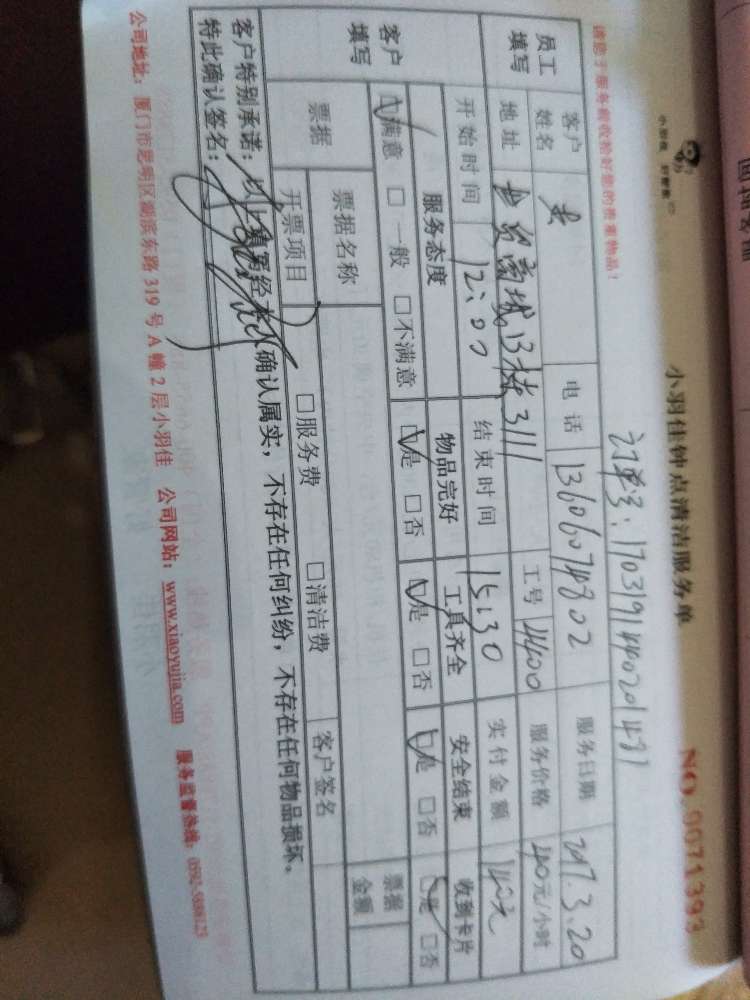 小羽佳 好管家
小羽佳钟点清洁服务单
NO.0071393
订单号：17031914402014
请您于服务前收拾好您的贵重物品！
员工填写
客户姓名
电话 13606074802
服务日期 2017.3.20
地址 世贸商城13栋3111
工号 4400
服务价格 40元/小时
开始时间 12:00
结束时间 15:30
实付金额 140元
客户填写
服务态度 物品完好 工具齐全 安全结束 收到卡片
☑满意 □一般 □不满意 ☑是 □否 ☑是 □否 ☑是 □否 ☑是 □否
票据
票据名称
客户签名
票据金额
开票项目 □服务费 □清洁费
客户特别承诺：以上填写经本人确认属实，不存在任何纠纷，不存在任何物品损坏。
特此确认签名：
公司地址：厦门市思明区湖滨东路319号A幢2层小羽佳 公司网站：www.xiaoyujia.com 服务监督热线：0592-